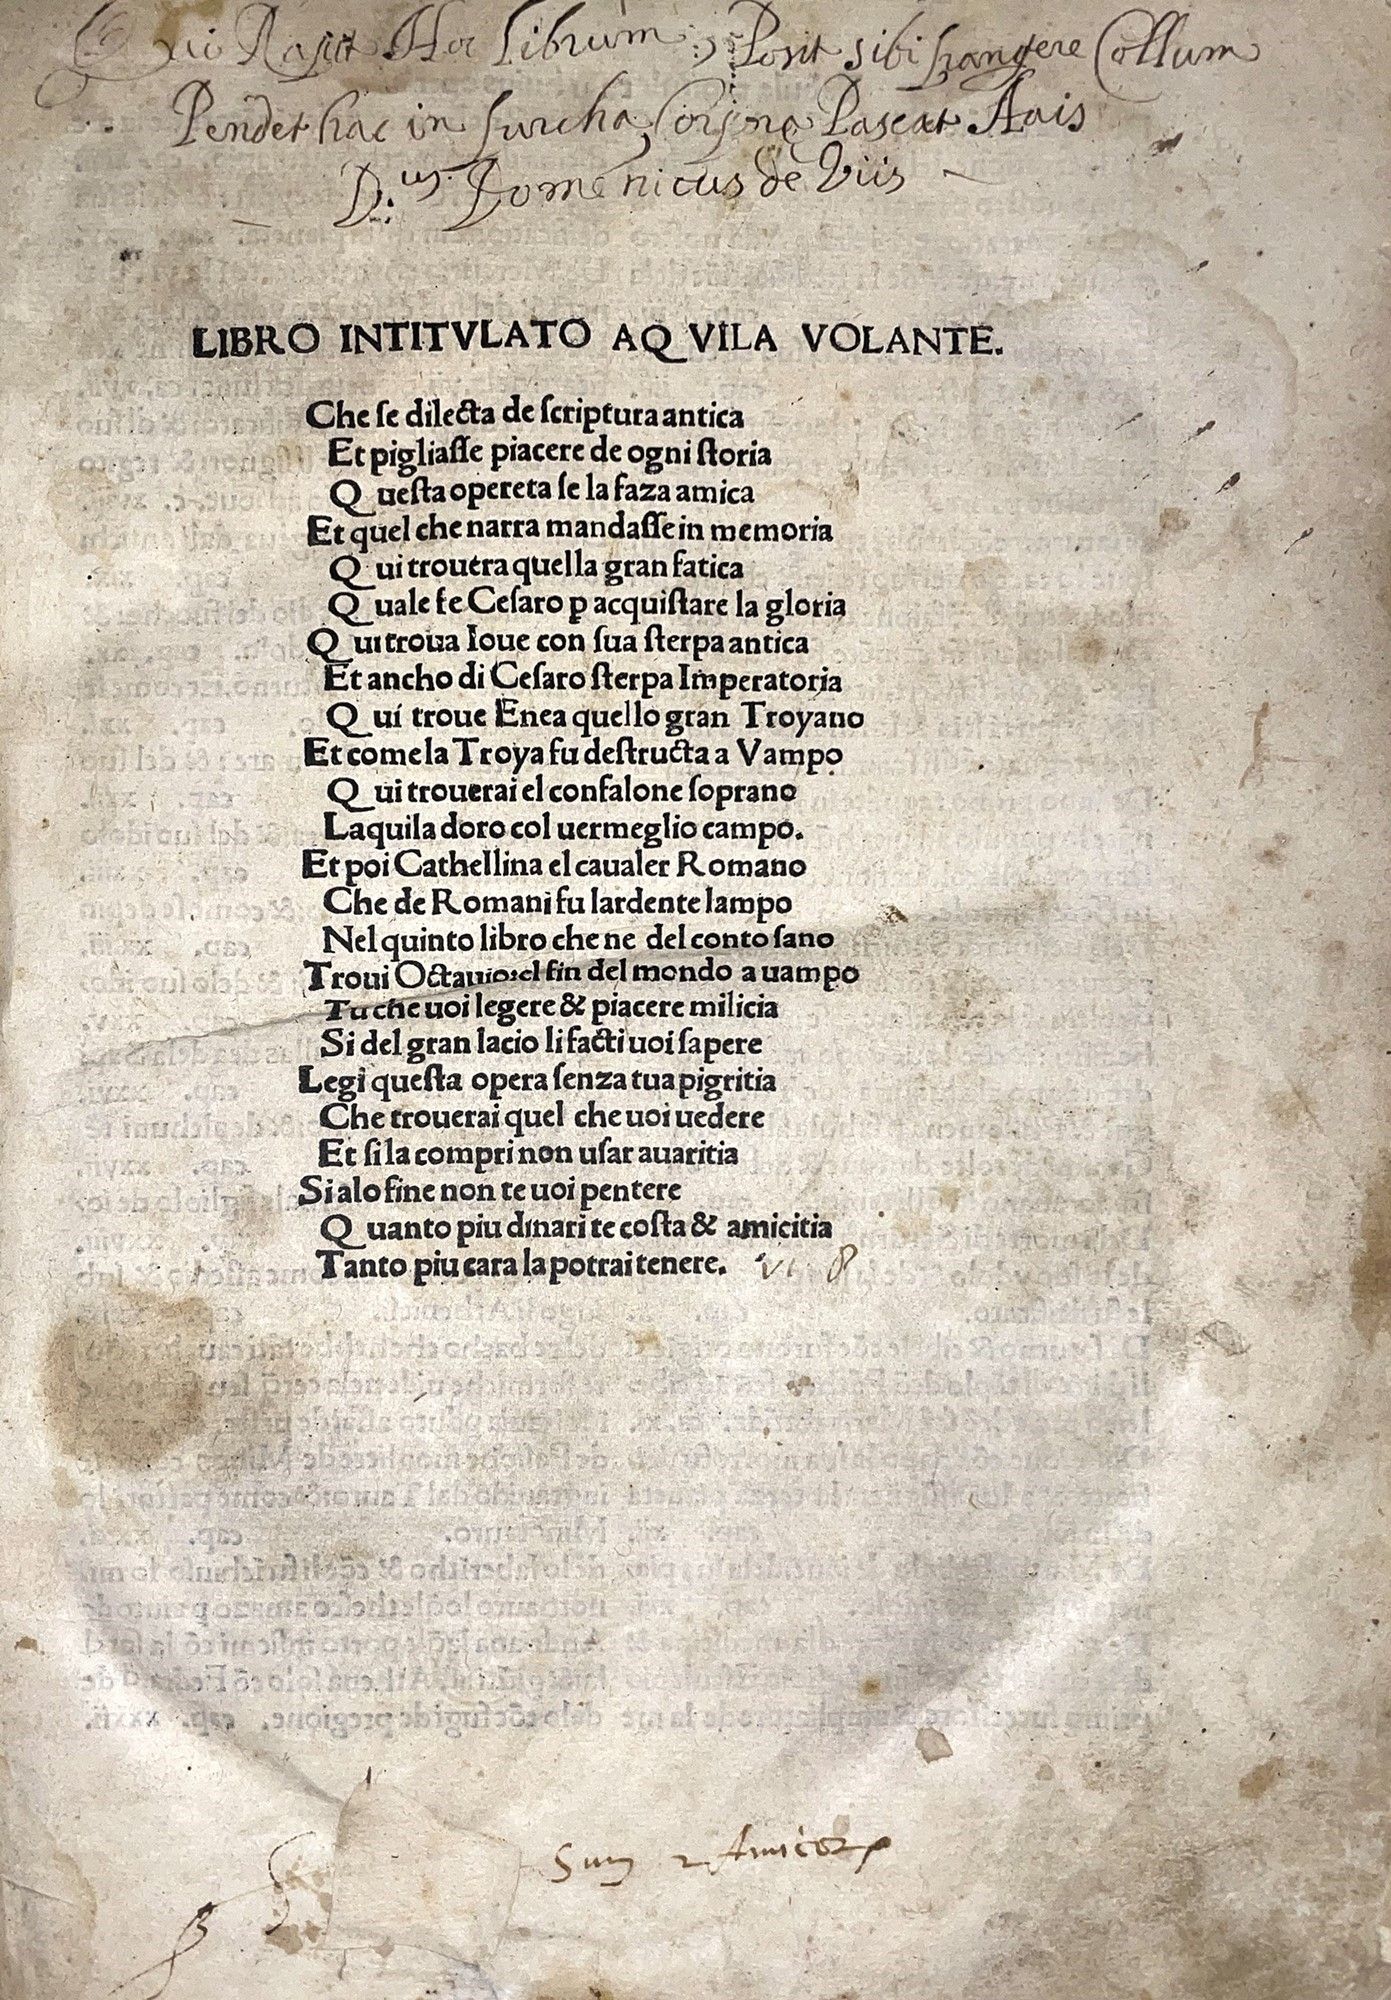 Qui Rapit Hoc librum, Posit sibi frangere Collum
Pendet hac in furcha, Corpus Pascat Auis
D.us Domenicus de Viis
LIBRO INTITVLATO AQVILA VOLANTE.
Che ſe dilecta de ſcriptura antica
Et pigliaſſe piacere de ogni ſtoria
Queſta opereta ſe la faza amica
Et quel che narra mandaſſe in memoria
Qui trouera quella gran fatica
Quale fe Ceſaro ꝑ acquiſtare la gloria
Qui troua Ioue con ſua ſterpa antica
Et ancho di Ceſaro ſterpa Imperatoria
Qui troue Enea quello gran Troyano
Et come la Troya fu deſtructa a Vampo
Qui trouerai el confalone ſoprano
Laquila doro col uermeglio campo.
Et poi Cathellina el caualer Romano
Che de Romani fu lardente lampo
Nel quinto libro che ne del conto ſano
Troui Octauio: el fin del mondo a uampo
Tu che uoi legere & piacere milicia
Si del gran lacio li facti uoi ſapere
Legi queſta opera ſenza tua pigritia
Che trouerai quel che uoi uedere
Et ſi la compri non uſar auaritia
Si alo fine non te uoi pentere
Quanto piu dinari te coſta & amicitia
Tanto piu cara la potrai tenere.
Sum Amicoꝝ